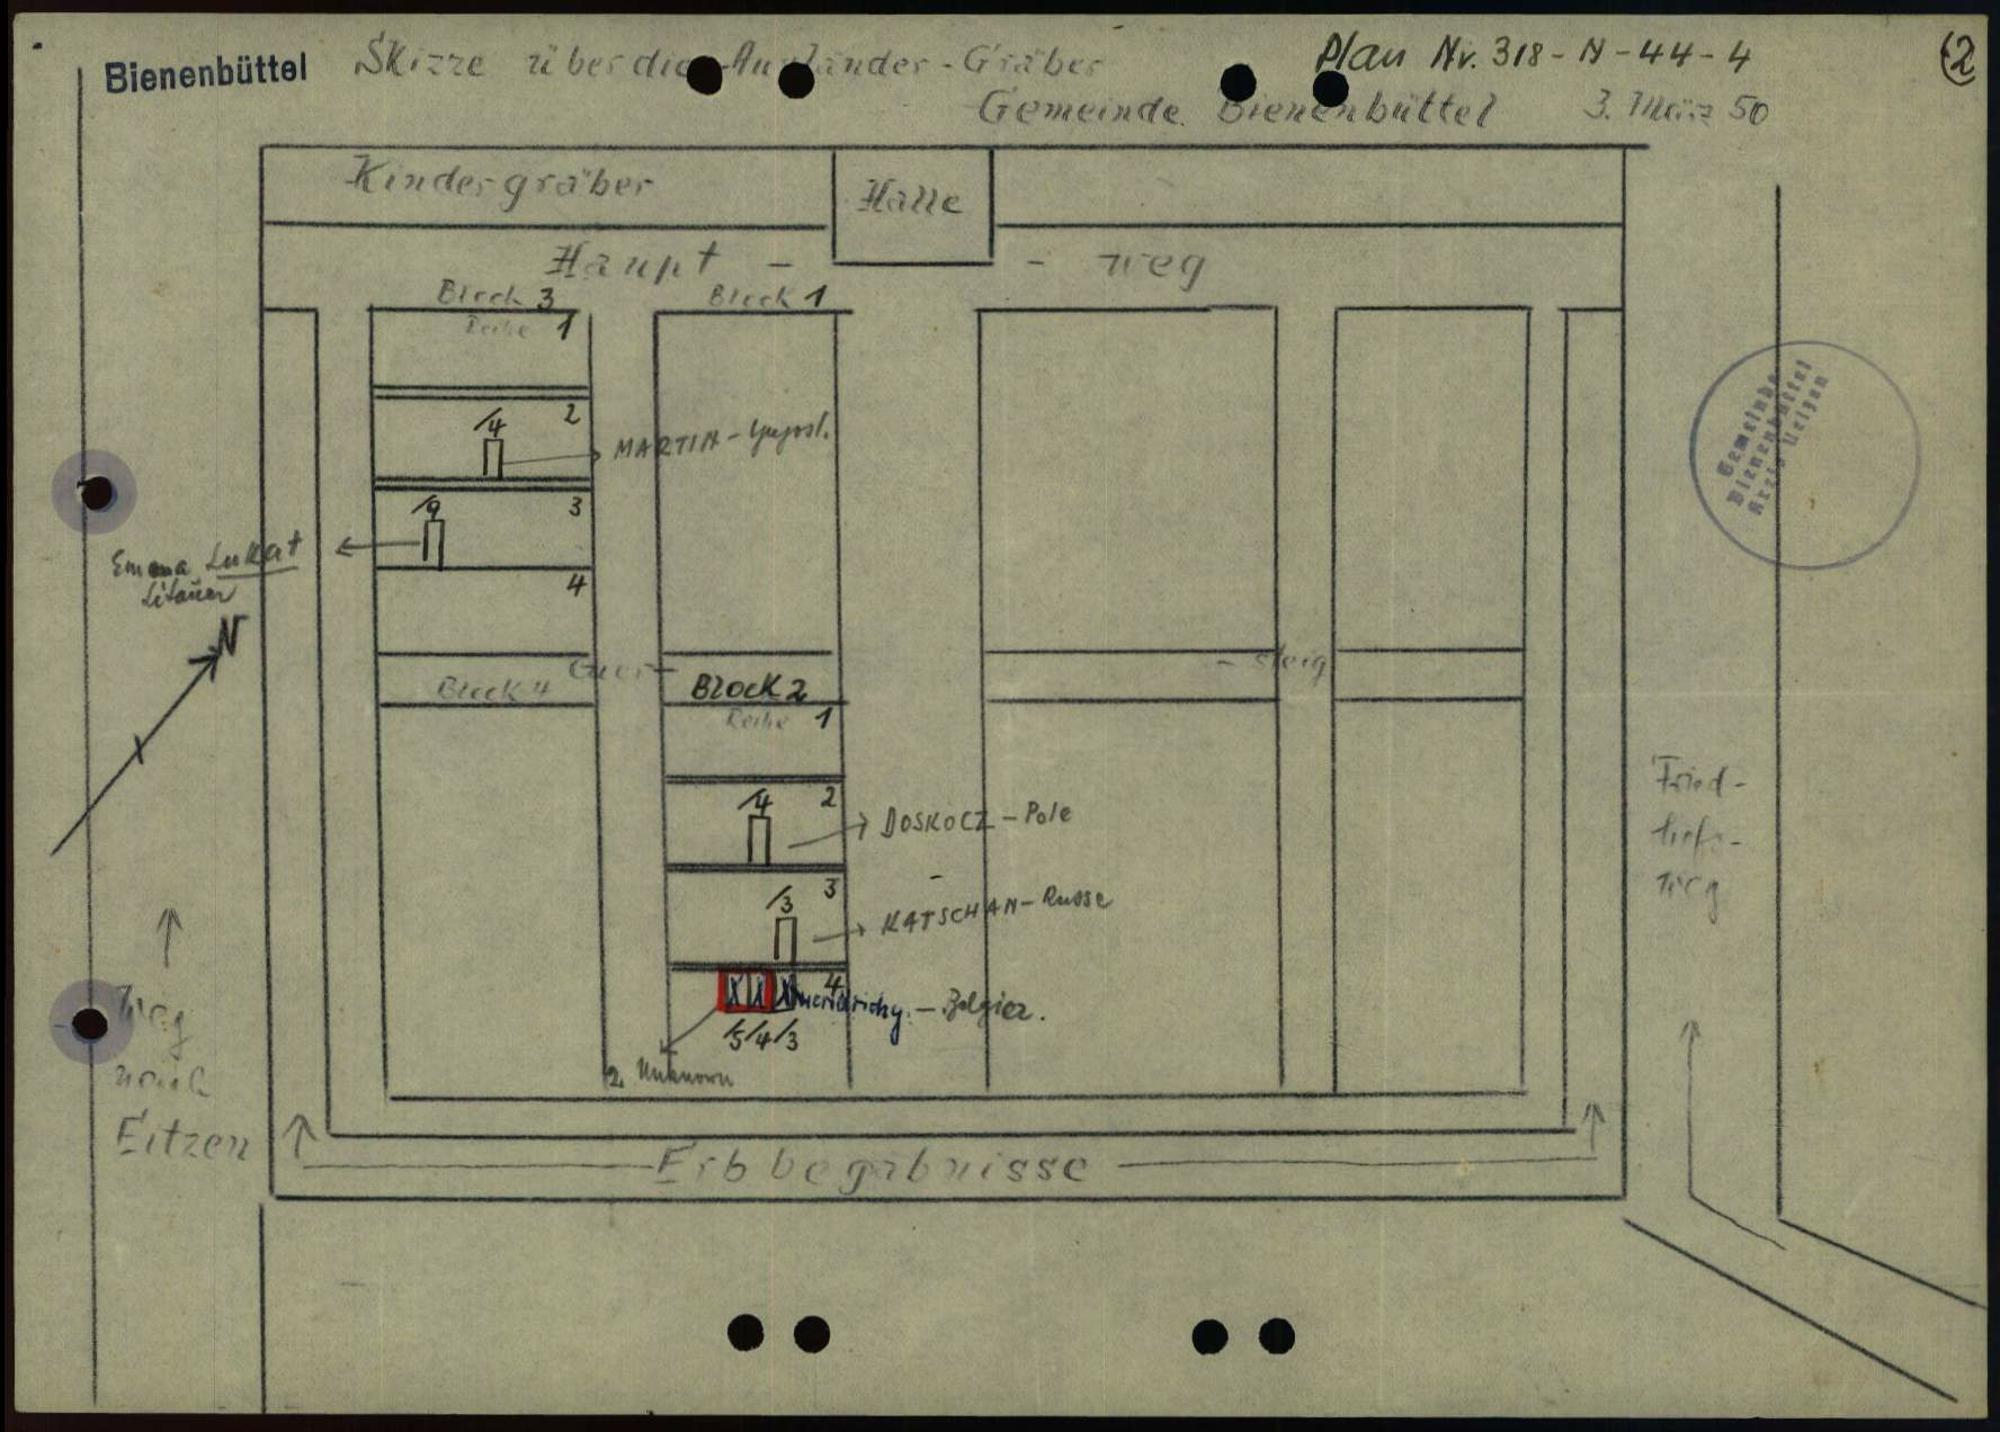 Bienenbüttel
Skizze über die Ausländer-Gräber
Plan Nr. 318-N-44-4
2
Gemeinde Bienenbüttel 3. März 50
Kindergräber
Halle
Haupt - - weg
Block 3
Block 1
Reihe 1
2
/4
MARTIN - Jugosl.
3
/9
Emma Lukat
Litauer
4
N
Quer- - steig
Block 4
Block 2
Reihe 1
2
/4
DOSKOCZ - Pole
3
/3
KATSCHAN - Russe
4
X X X
- Belgier.
/5/4/3
2 Unknown
Weg
nach
Eitzen
Erbbegäbnisse
Fried-
hofs-
weg
Gemeinde
Bienenbüttel
Kreis Uelzen